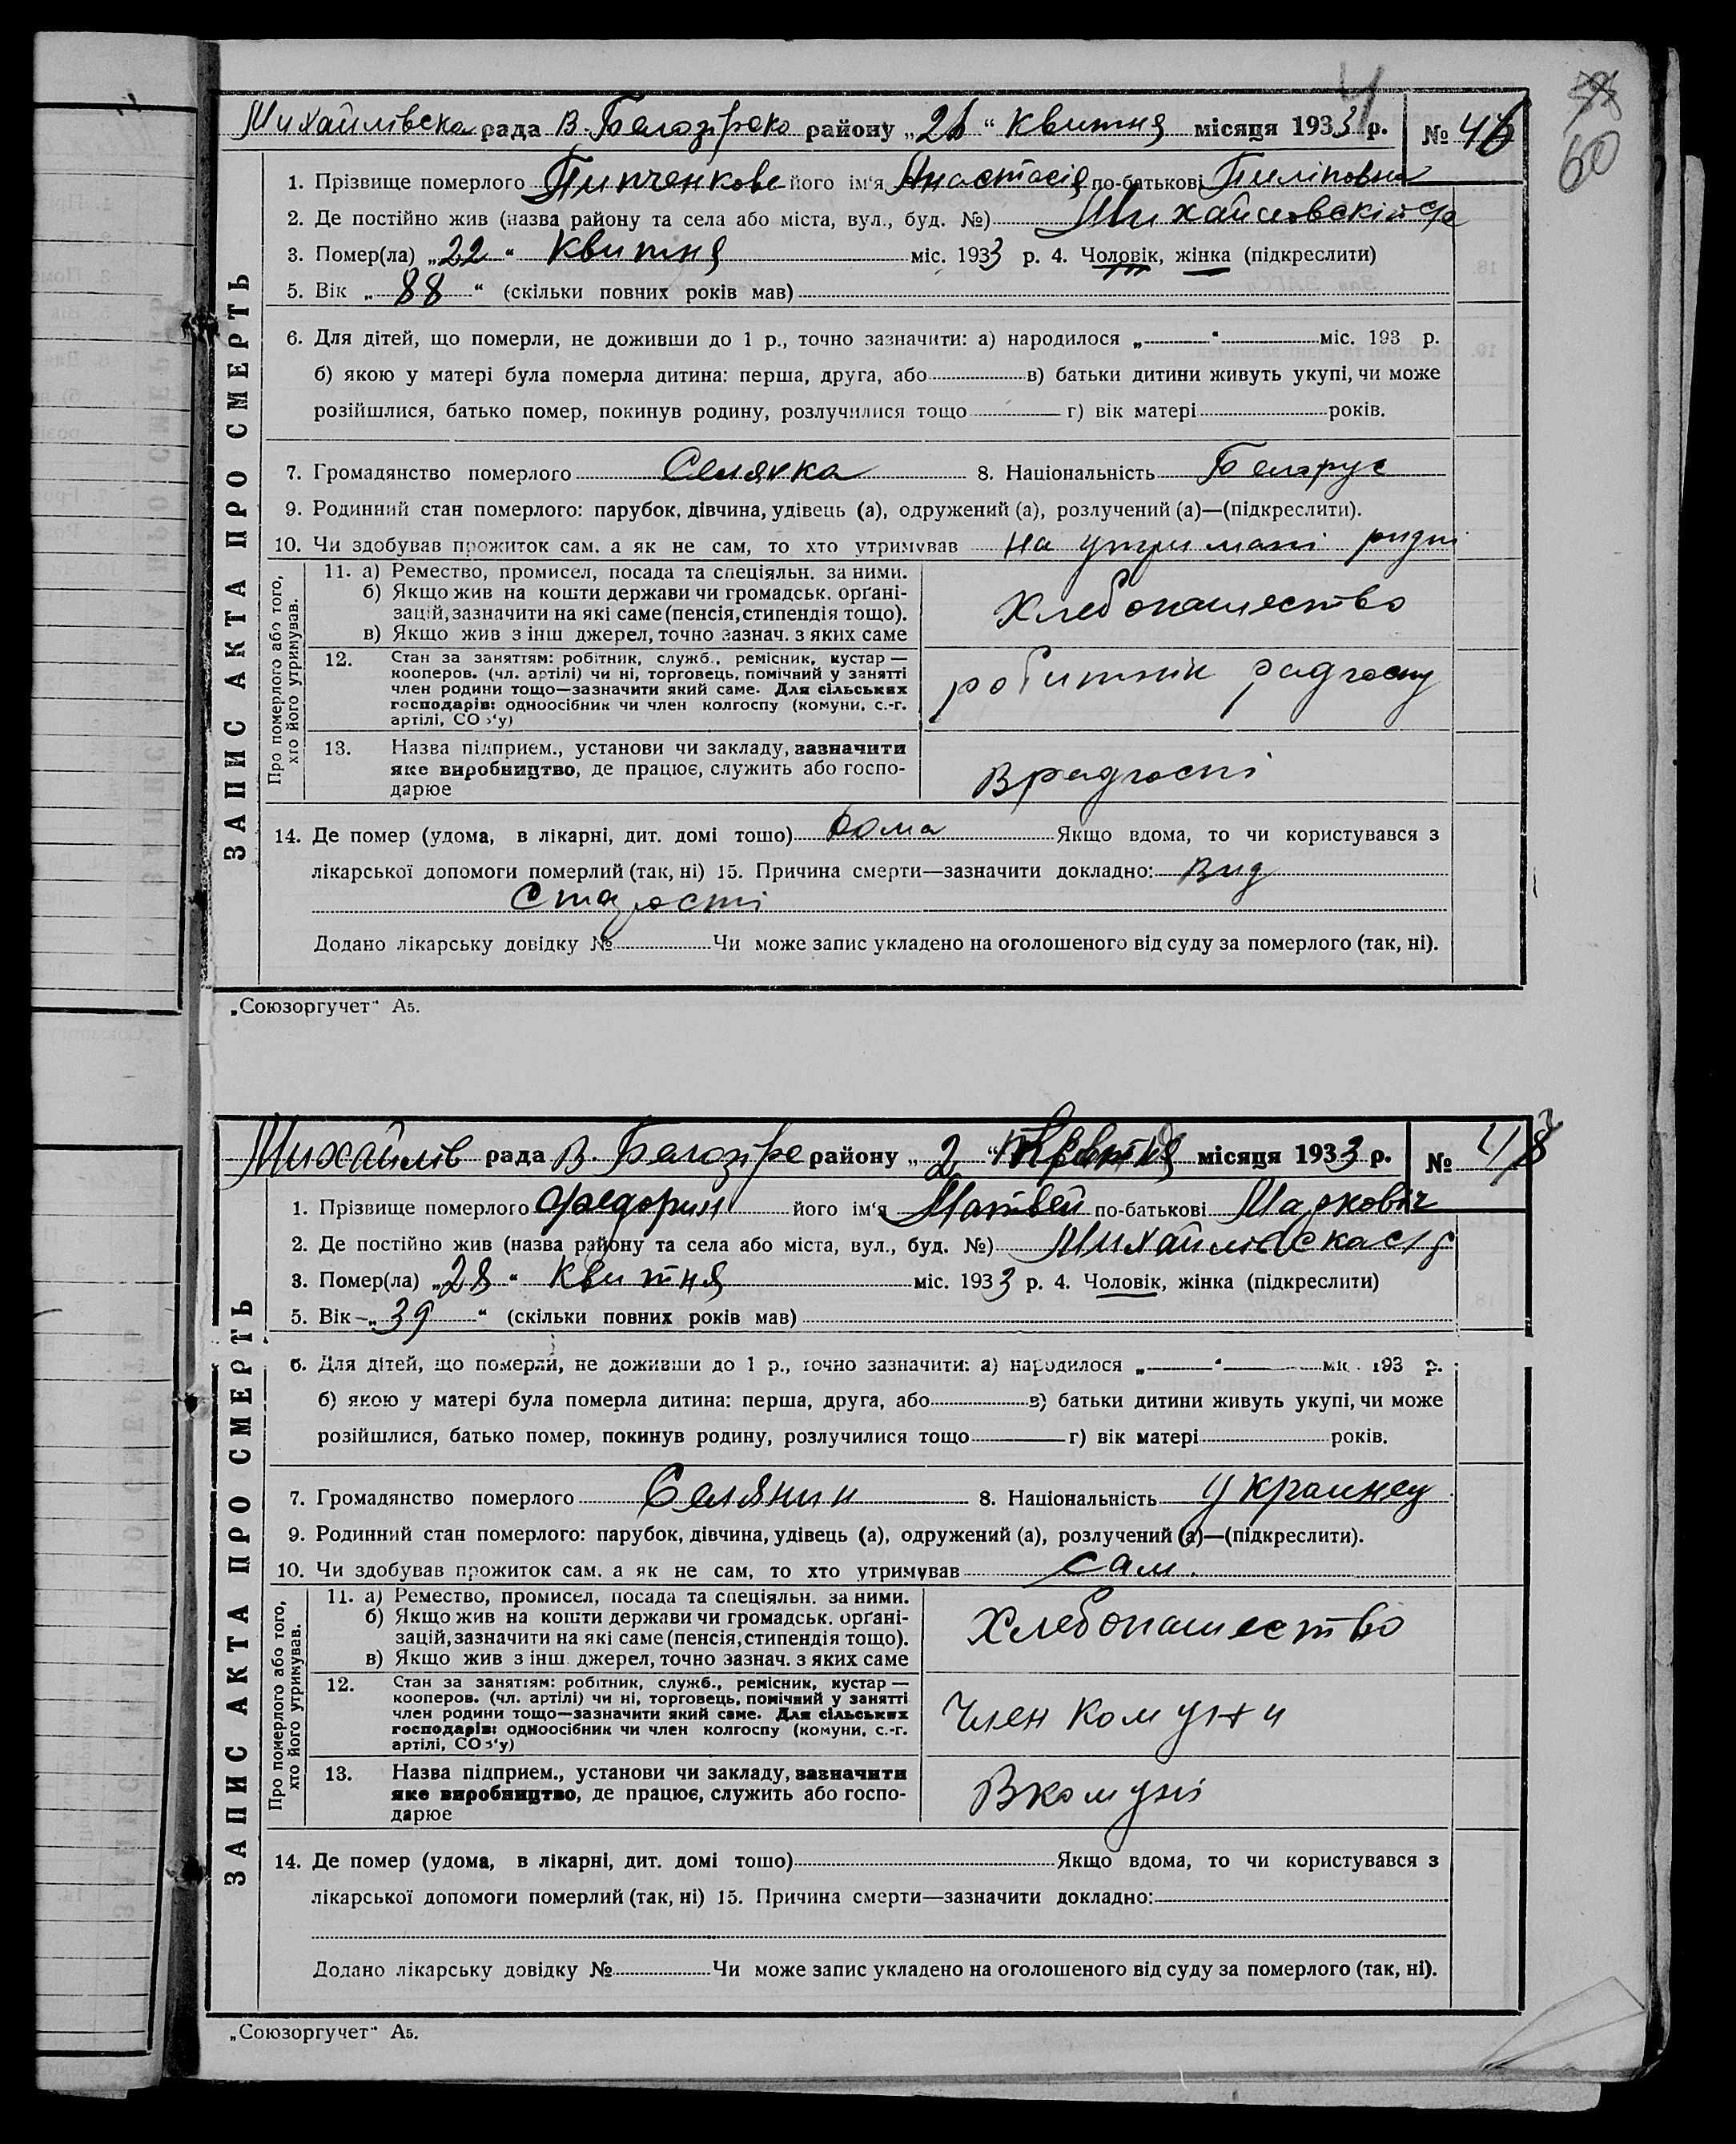 60
Михайлівска рада В. Белозірско району „ 26 “ квитня місяця 1933 р. № 46
ЗАПИС АКТА ПРО СМЕРТЬ
1. Прізвище померлого його ім‘я Анастасія по-батькові Пиліповна
2. Де постійно жив (назва району та села або міста, вул., буд. №)
3. Помер(ла) „ 22 “ квитня міс. 1933 р. 4. Чоловік, жінка (підкреслити)
5. Вік „ 88 “ (скільки повних років мав)
6. Для дітей, що померли, не доживши до 1 р., точно зазначити: а) народилося „ “ міс. 193 р.
б) якою у матері була померла дитина: перша, друга, або в) батьки дитини живуть укупі, чи може
розійшлися, батько помер, покинув родину, розлучилися тощо г) вік матері років.
7. Громадянство померлого Селянка 8. Національність Беларус
9. Родинний стан померлого: парубок, дівчина, удівець (а), одружений (а), розлучений (а)—(підкреслити).
10. Чи здобував прожиток сам. а як не сам, то хто утримував на утримані ридні
Про померлого або того, хто його утримував.
11. а) Ремество, промисел, посада та спеціяльн. за ними.
б) Якщо жив на кошти держави чи громадськ. орґані-
зацій, зазначити на які саме (пенсія, стипендія тощо).
в) Якщо жив з інш джерел, точно зазнач. з яких саме
Хлебопашество
12. Стан за заняттям: робітник, служб., ремісник, кустар —
кооперов. (чл. артілі) чи ні, торговець, помічний у занятті
член родини тощо—зазначити який саме. Для сільських
господарів: одноосібник чи член колгоспу (комуни, с.-г.
артілі, СОз‘у)
робитнік радгоспу
13. Назва підприєм., установи чи закладу, зазначити
яке виробництво, де працює, служить або госпо-
дарює
В радгоспі
14. Де помер (удома, в лікарні, дит. домі тошо) дома Якщо вдома, то чи користувався з
лікарської допомоги померлий (так, ні) 15. Причина смерти—зазначити докладно: Вид
старості
Додано лікарську довідку № Чи може запис укладено на оголошеного від суду за померлого (так, ні).
„Союзоргучет“ А5.
Михайлів рада В. Белозіре району „ 2 “ місяця 1933 р. №
ЗАПИС АКТА ПРО СМЕРТЬ
1. Прізвище померлого Федорин його ім‘я Матвей по-батькові Маркович
2. Де постійно жив (назва району та села або міста, вул., буд. №) Михайлівска с/р
3. Помер(ла) „ 28 “ квитня міс. 1933 р. 4. Чоловік, жінка (підкреслити)
5. Вік „ 39 “ (скільки повних років мав)
6. Для дітей, що померли, не доживши до 1 р., точно зазначити: а) народилося „ “ міс. 193 р.
б) якою у матері була померла дитина: перша, друга, або в) батьки дитини живуть укупі, чи може
розійшлися, батько помер, покинув родину, розлучилися тощо г) вік матері років.
7. Громадянство померлого Селянин 8. Національність Украинец
9. Родинний стан померлого: парубок, дівчина, удівець (а), одружений (а), розлучений (а)—(підкреслити).
10. Чи здобував прожиток сам. а як не сам, то хто утримував сам.
Про померлого або того, хто його утримував.
11. а) Ремество, промисел, посада та спеціяльн. за ними.
б) Якщо жив на кошти держави чи громадськ. орґані-
зацій, зазначити на які саме (пенсія, стипендія тощо).
в) Якщо жив з інш. джерел, точно зазнач. з яких саме
Хлебопашество
12. Стан за заняттям: робітник, служб., ремісник, кустар —
кооперов. (чл. артілі) чи ні, торговець, помічний у занятті
член родини тощо—зазначити який саме. Для сільських
господарів: одноосібник чи член колгоспу (комуни, с.-г.
артілі, СОз‘у)
Член комуни
13. Назва підприєм., установи чи закладу, зазначити
яке виробництво, де працює, служить або госпо-
дарює
В комуні
14. Де помер (удома, в лікарні, дит. домі тошо) Якщо вдома, то чи користувався з
лікарської допомоги померлий (так, ні) 15. Причина смерти—зазначити докладно:
Додано лікарську довідку № Чи може запис укладено на оголошеного від суду за померлого (так, ні).
„Союзоргучет“ А5.